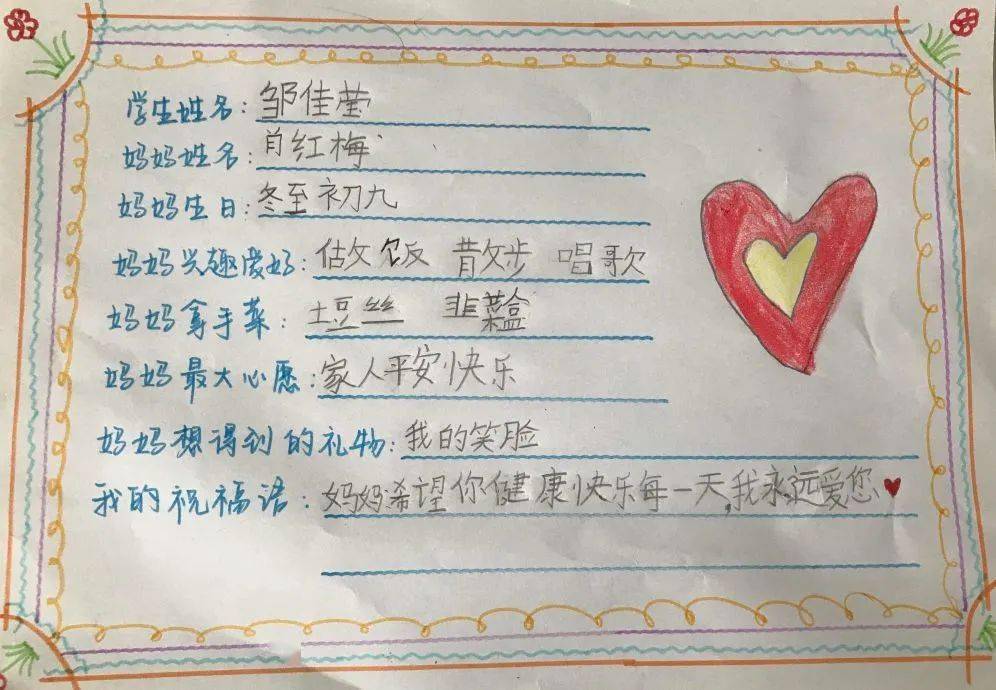 学生姓名:邹佳莹
妈妈姓名:肖红梅
妈妈生日:冬至初九
妈妈兴趣爱好:做饭 散步 唱歌
妈妈拿手菜:土豆丝 韭菜盒
妈妈最大心愿:家人平安快乐
妈妈想得到的礼物:我的笑脸
我的祝福语:妈妈希望你健康快乐每一天,我永远爱您